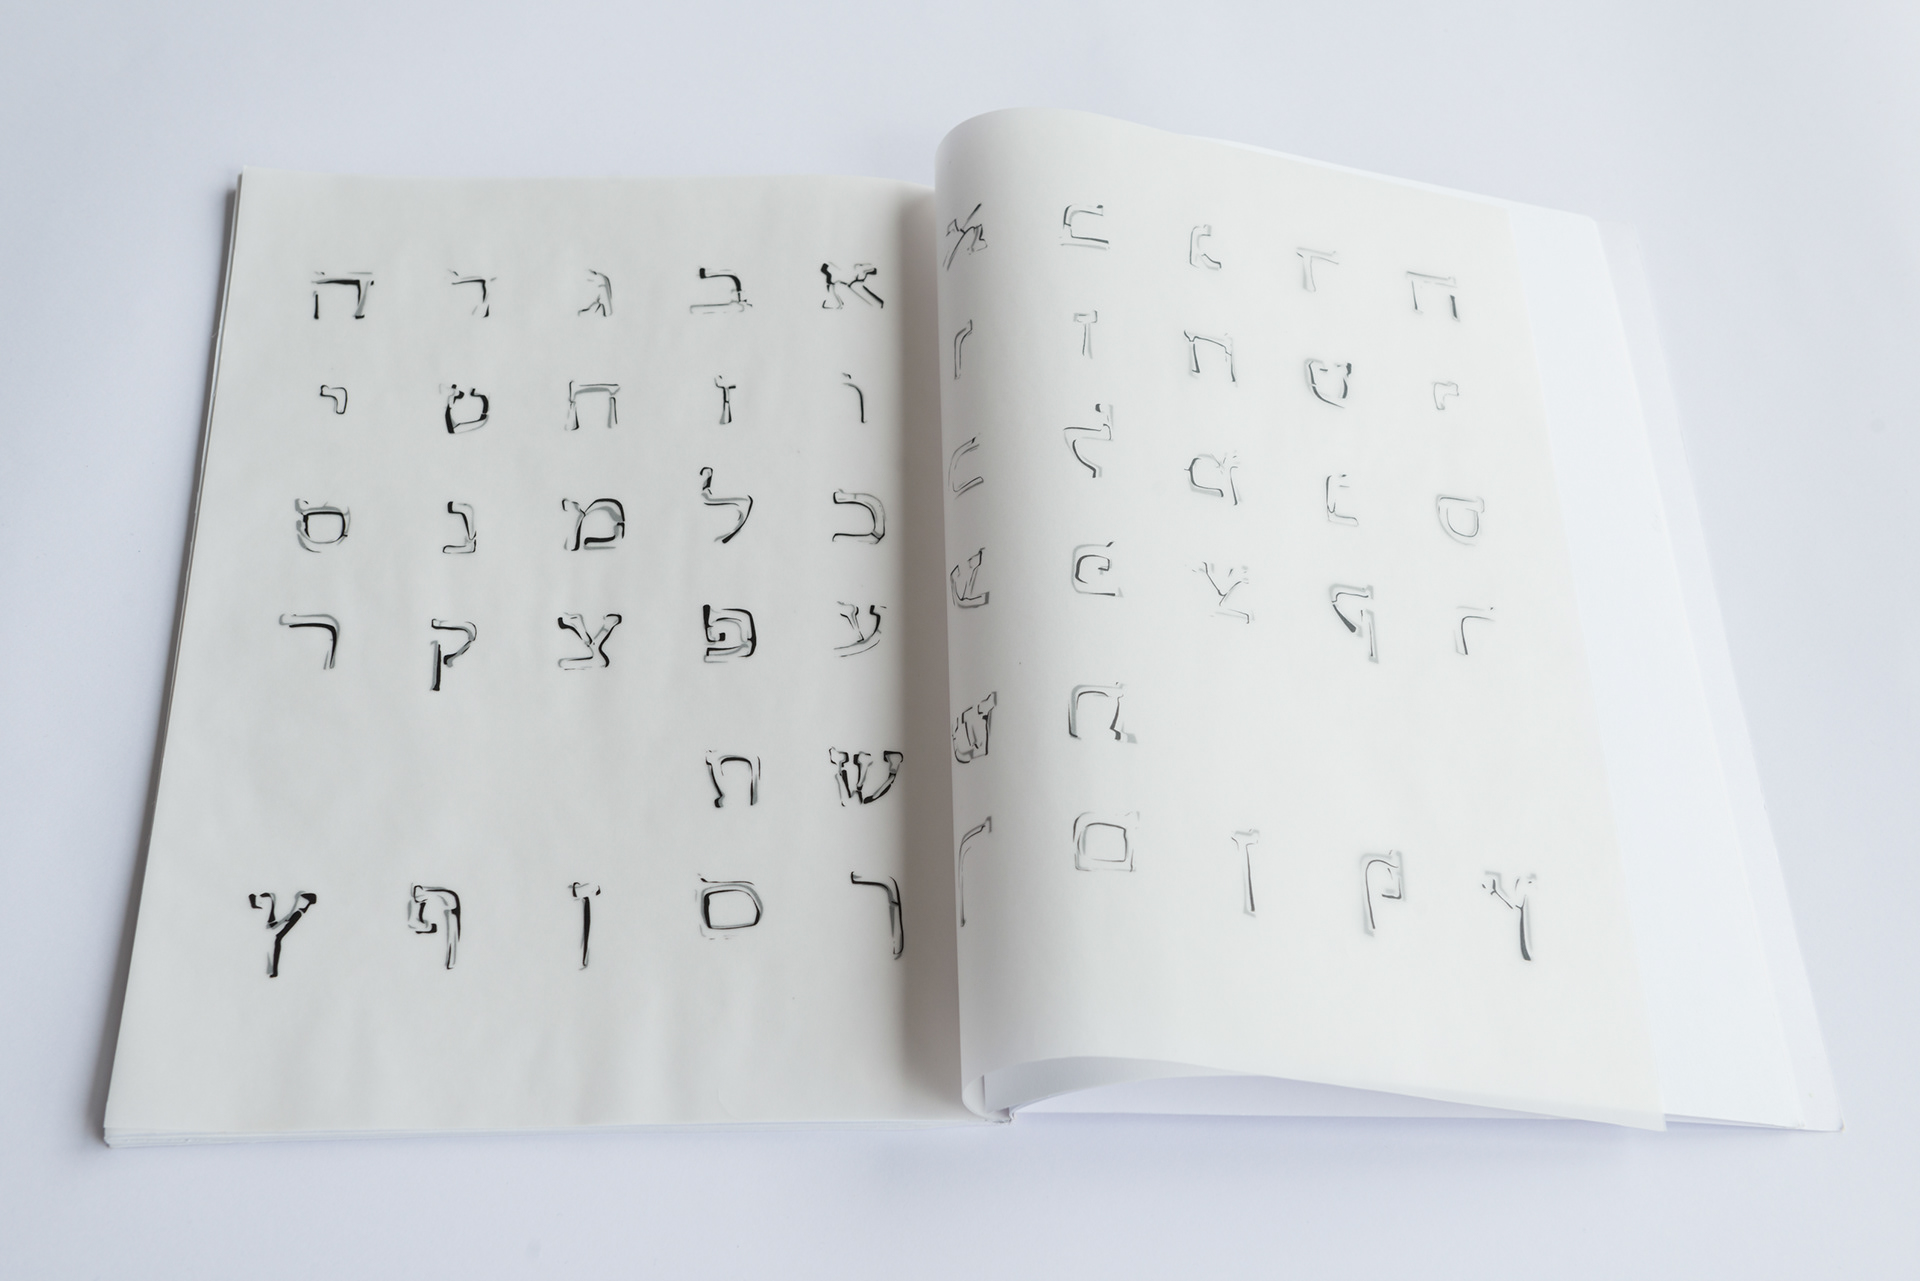 א ב ג ד ה
ו ז ח ט י
כ ל מ נ ס
ע פ צ ק ר
ש ת
ך ם ן ף ץ
א ב ג ד ה
ו ז ח ט י
כ ל מ נ ס
ע פ צ ק ר
ש ת
ך ם ן ף ץ